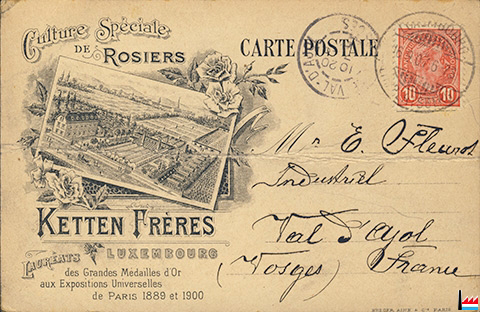 Culture Spéciale
DE ROSIERS
CARTE POSTALE
10 10
Mr. E. Fleurot
Industriel
Val d'Ajol
(Vosges) France
KETTEN FRÈRES
LUXEMBOURG
LAURÉATS
des Grandes Médailles d'Or
aux Expositions Universelles
de PARIS 1889 et 1900